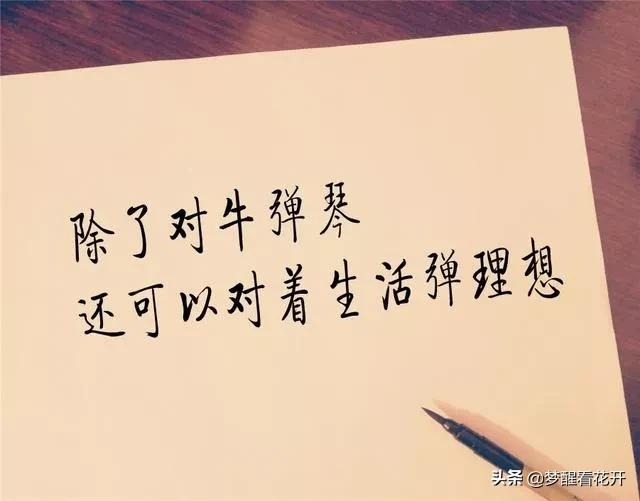 除了对牛弹琴
还可以对着生活弹理想
头条 @梦醒看花开